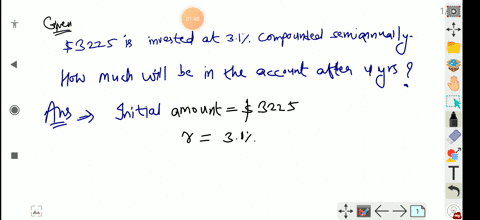 Given
$3225 is invested at 3.1% compounded semiannually.
How much will be in the account after 4 yrs?
Ans ⇒ Initial amount = $3225
r = 3.1%.